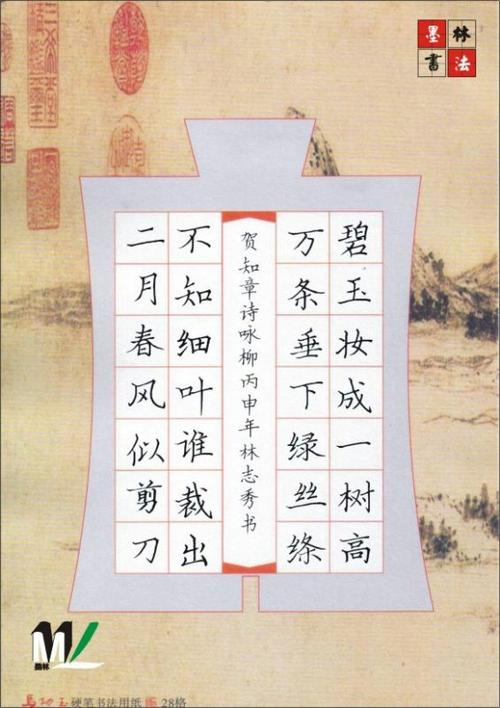 墨林
書法
碧玉妆成一树高
万条垂下绿丝绦
贺知章诗咏柳丙申年林志秀书
不知细叶谁裁出
二月春风似剪刀
墨林
硬笔书法用纸
28格